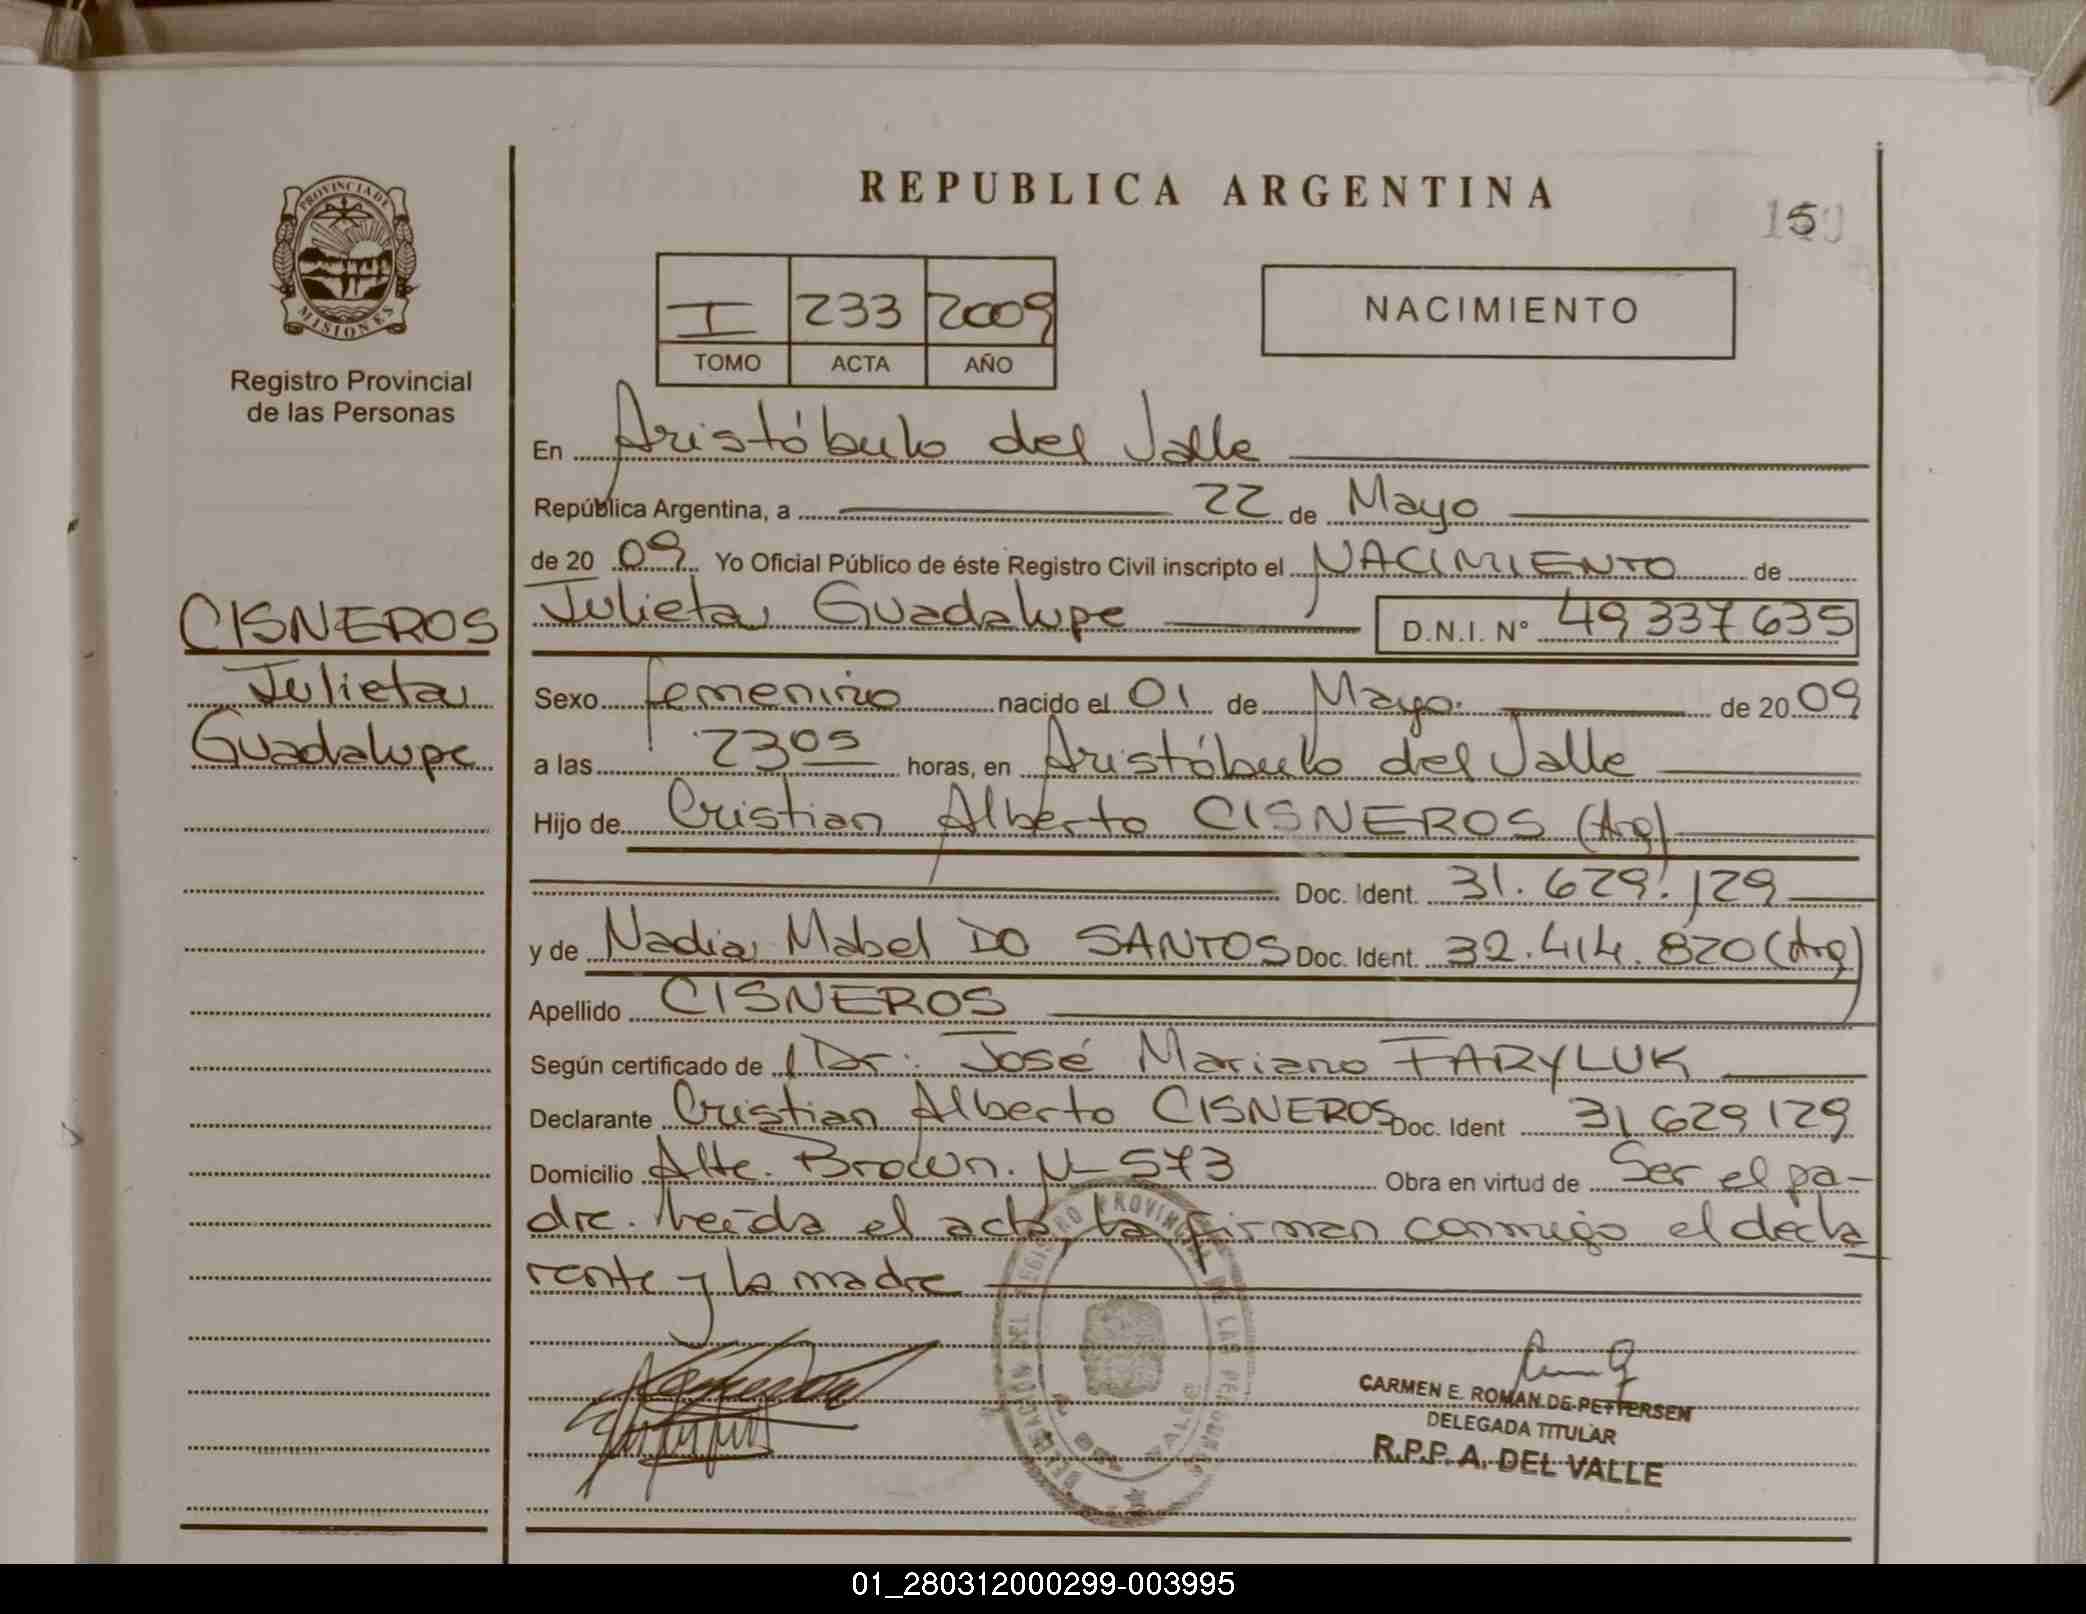 PROVINCIA DE
MISIONES
Registro Provincial
de las Personas
CISNEROS
Julieta
Guadalupe
REPUBLICA ARGENTINA
I 233 2009
TOMO ACTA AÑO
NACIMIENTO
En Aristóbulo del Valle
República Argentina, a 22 de Mayo
de 20 09 Yo Oficial Público de éste Registro Civil inscripto el NACIMIENTO de
Julieta Guadalupe D.N.I. N° 49337635
Sexo femenino nacido el 01 de Mayo. de 20 09
a las 23 05 horas, en Aristóbulo del Valle
Hijo de Cristian Alberto CISNEROS (Arg)
Doc. Ident. 31.629.129
y de Nadia Mabel DO SANTOS Doc. Ident. 32.414.820 (Arg)
Apellido CISNEROS
Según certificado de Dr. José Mariano FARYLUK
Declarante Cristian Alberto CISNEROS Doc. Ident 31629129
Domicilio Alte. Brown. N 573 Obra en virtud de Ser el pa-
dre. Leída el acta, la firman conmigo el decla
rante y la madre
CARMEN E. ROMAN DE PETTERSEN
DELEGADA TITULAR
R.P.P. A. DEL VALLE
01_280312000299-003995